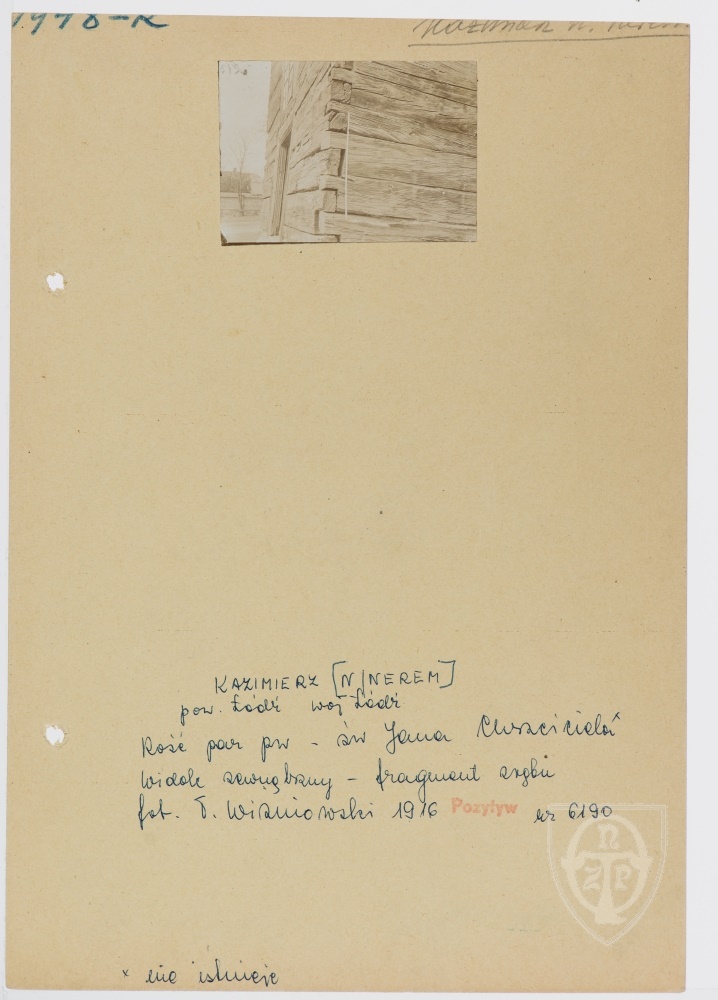 1978-R
Kazimierz n. Nerem
KAZIMIERZ [N/NEREM]
pow. Łódź woj Łódź
Kość par pw - św Jana Chrzciciela x
widok zewnętrzny - fragment zrębu
fot. T. Wiśniowski 1916 Pozytyw nr 6190
NZP
x nie istnieje